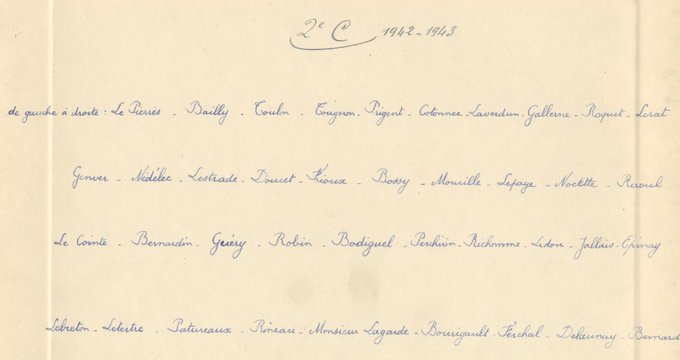 2e C 1942-1943
de gauche à droite : Le Pierrès - Bailly - Toulon - Tougeron - Pigent - Cotonnec - Laverdun - Gallerne - Roquet - Lerat
Genver - Nédélec - Lestrade - Doucet - Rioux - Bossy - Mouville - Lefaye - Noëtte - Raoul
Le Cointe - Bernardin - Guéry - Robin - Bodiguel - Perchirin - Richomme - Lidou - Jallais - Epinay
Lebreton - Letertre - Patureaux - Rineau - Monsieur Lagarde - Bourrigault - Ferchal - Delaunay - Bernard